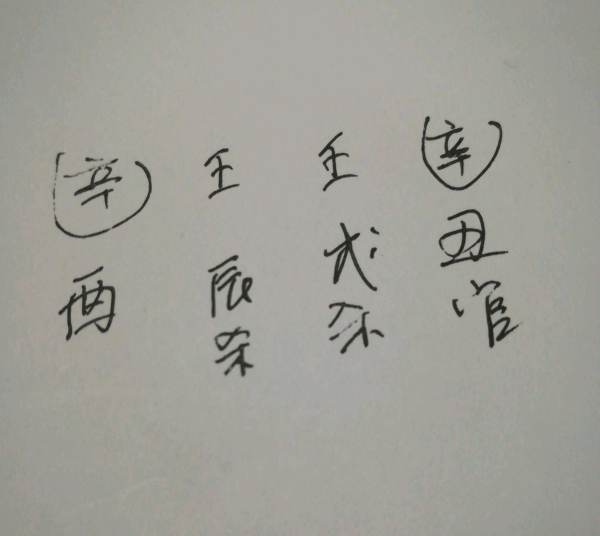 辛 壬 壬 辛
酉 辰 戌 丑
杀 杀 官